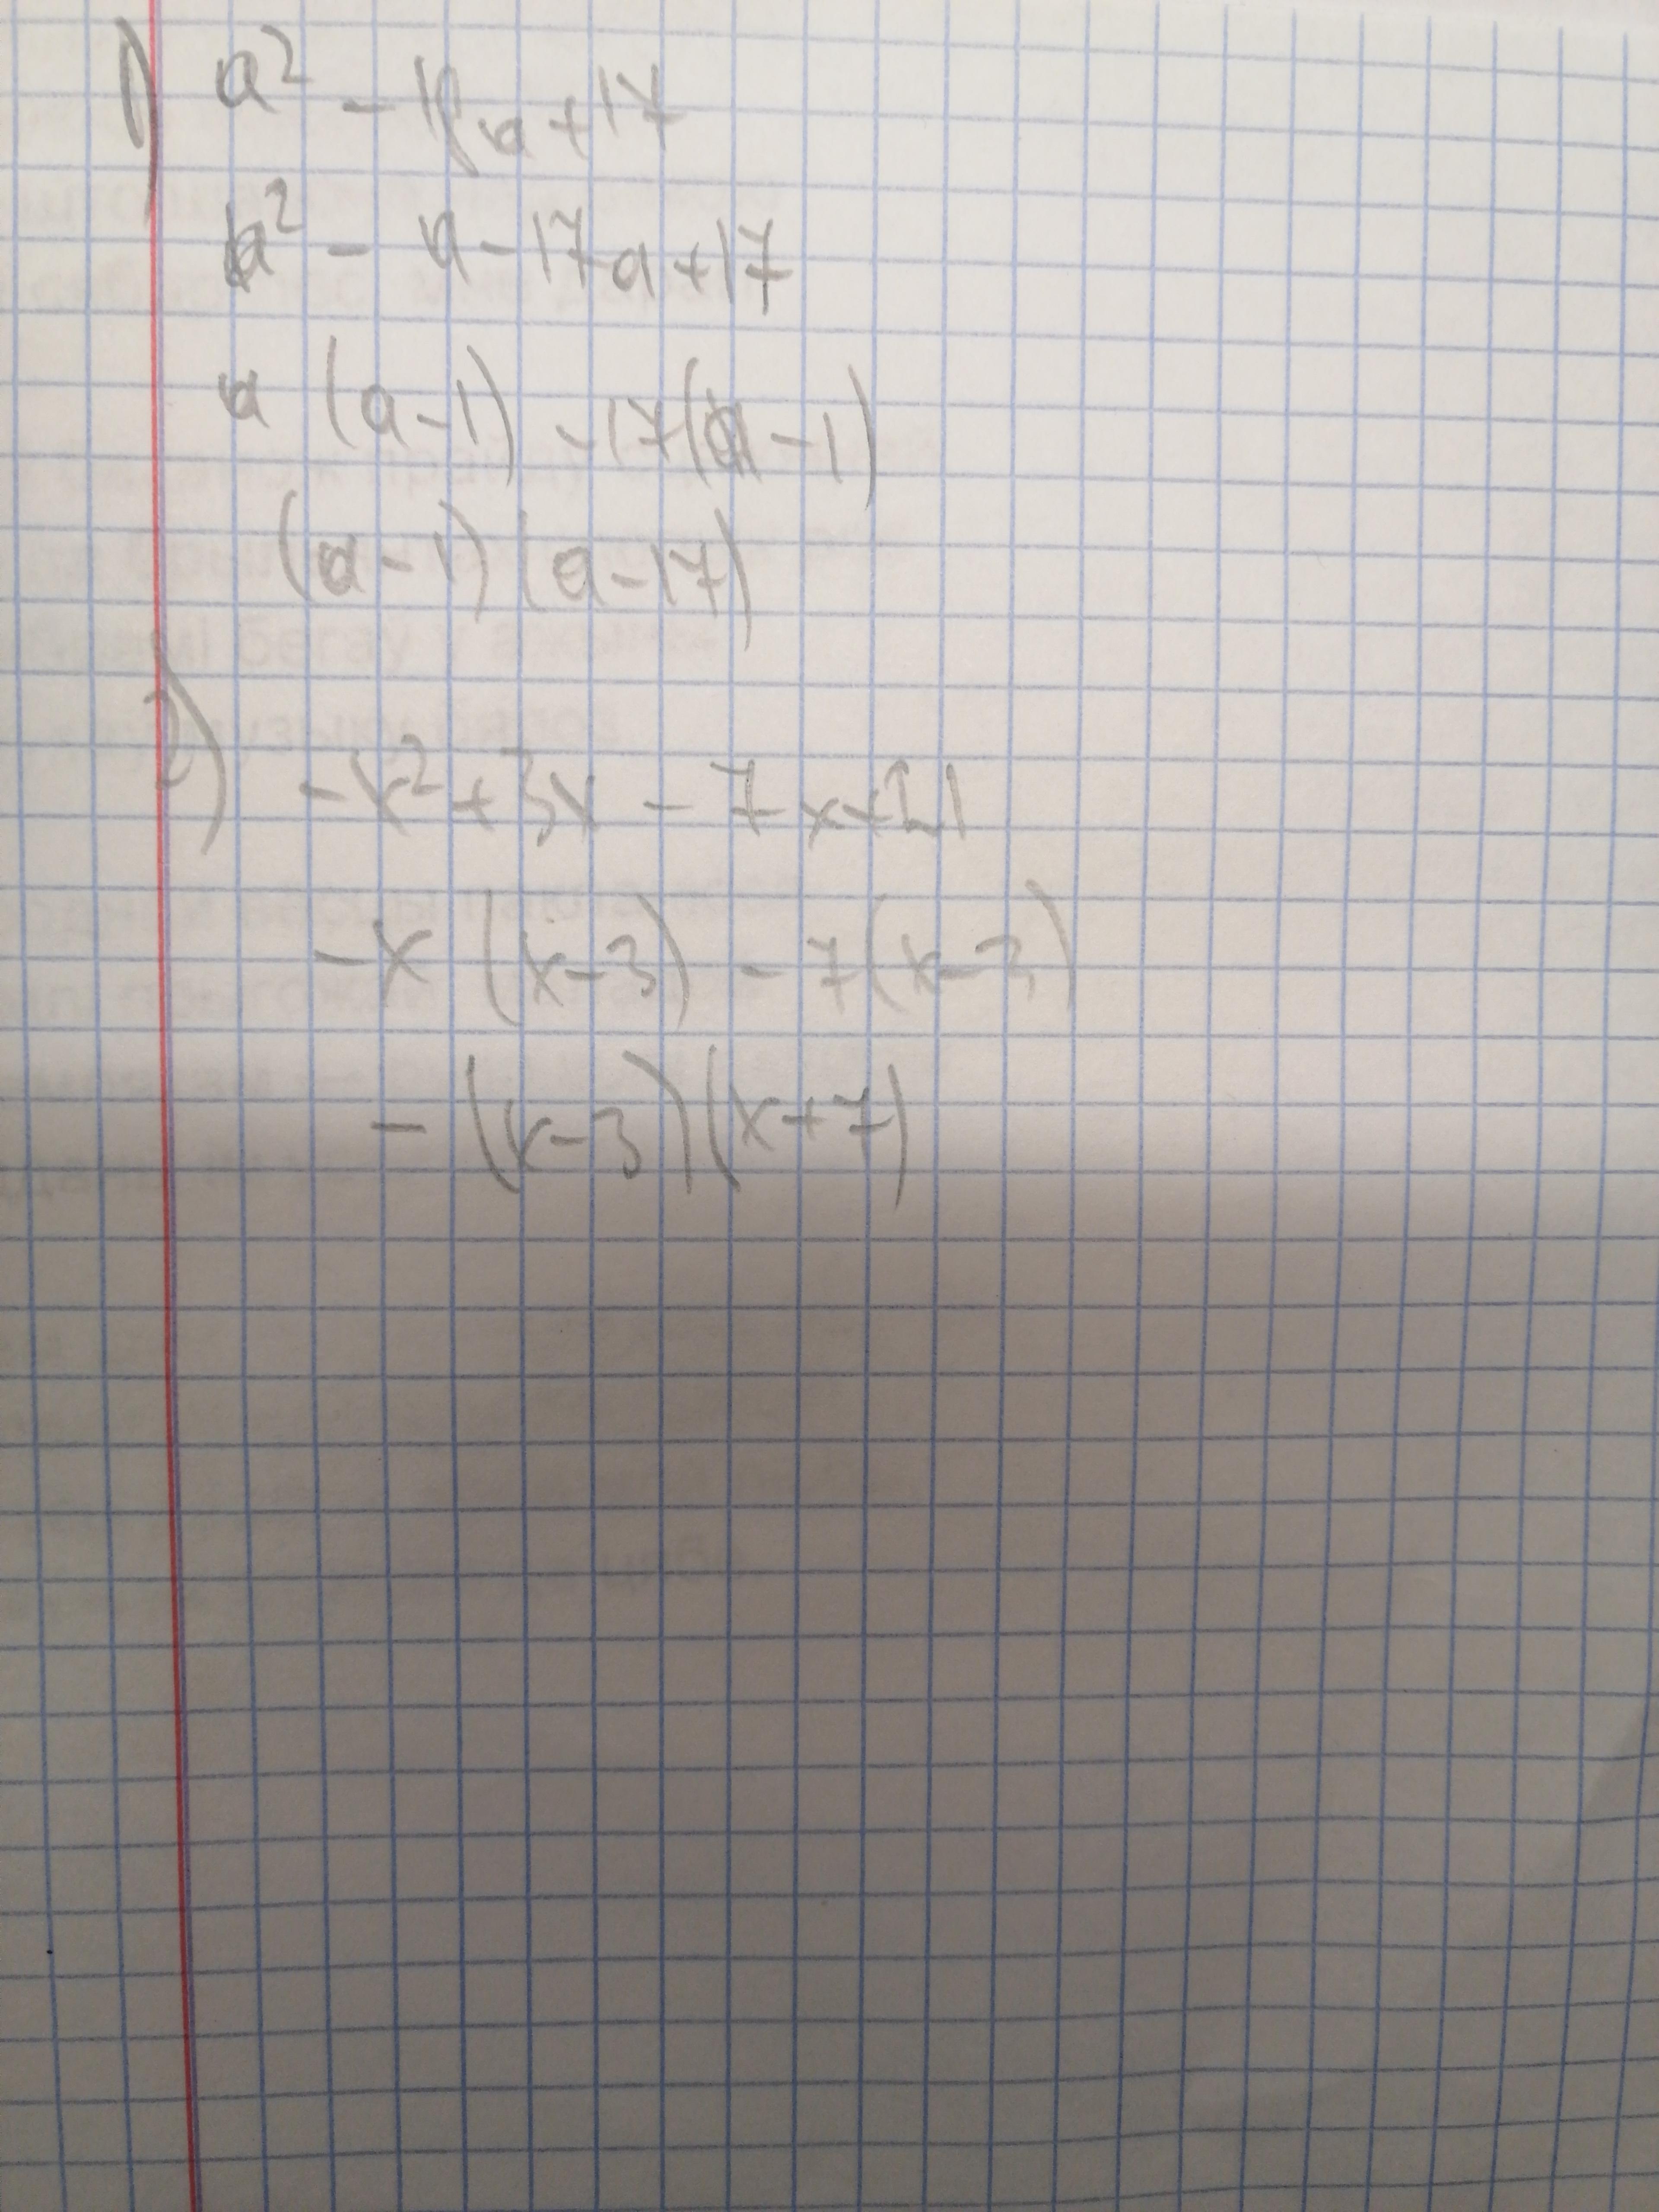 1) a² - 18a + 17
a² - a - 17a + 17
a (a - 1) - 17(a - 1)
(a - 1) (a - 17)
2) - x² + 3x - 7x + 21
- x (x - 3) - 7(x - 3)
- (x - 3)(x + 7)